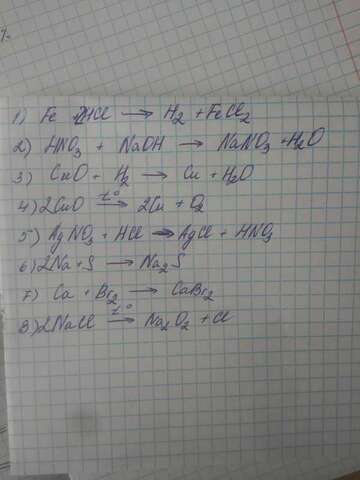 1) Fe 2HCl → H₂ + FeCl₂
2) HNO₃ + NaOH → NaNO₃ + H₂O
3) CuO + H₂ → Cu + H₂O
4) 2CuO t° → 2Cu + O₂
5) AgNO₃ + HCl → AgCl + HNO₃
6) 2Na + S → Na₂S
7) Ca + Br₂ → CaBr₂
8) 2NaCl t° → Na₂O₂ + Cl